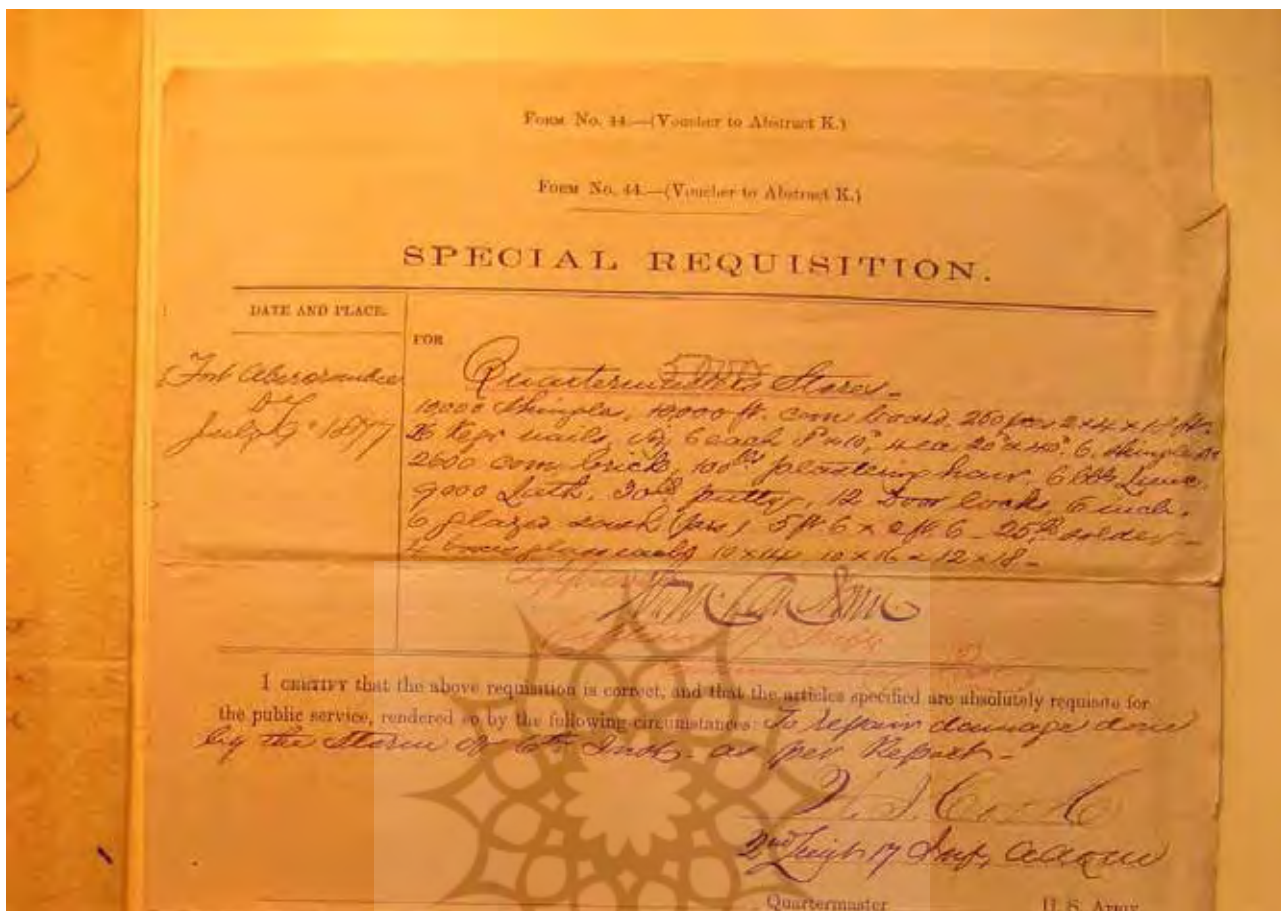 FORM No. 44.—(Voucher to Abstract K.)
FORM No. 44.—(Voucher to Abstract K.)
SPECIAL REQUISITION.
DATE AND PLACE.
FOR
Fort Abercrombie
D.T.
July 9" 1877
Quartermasters Stores-
10,000 Shingles, 10,000 ft. com boards, 250 pcs 2x4x12 ft.
Kegs nails, 6 each 8" 10", 20" 40". 6, Shingle
2600 com brick, 100 lbs plastering hair. 6 bbls Lime.
9000 Lath. 30 lbs putty, 12 Door locks 6 inch.
6 glazed sash (prs) 5 ft. 6 x 2 ft. 6 - 25 lbs solder-
boxes glass each 10x14 10x16 12x18-
Approved
I CERTIFY that the above requisition is correct, and that the articles specified are absolutely requisite for
the public service, rendered so by the following circumstances: To repair damage done
by the Storm of 6th Inst. as per Report-
2nd Lieut 17 Inf, AAQM
Quartermaster U. S. Army